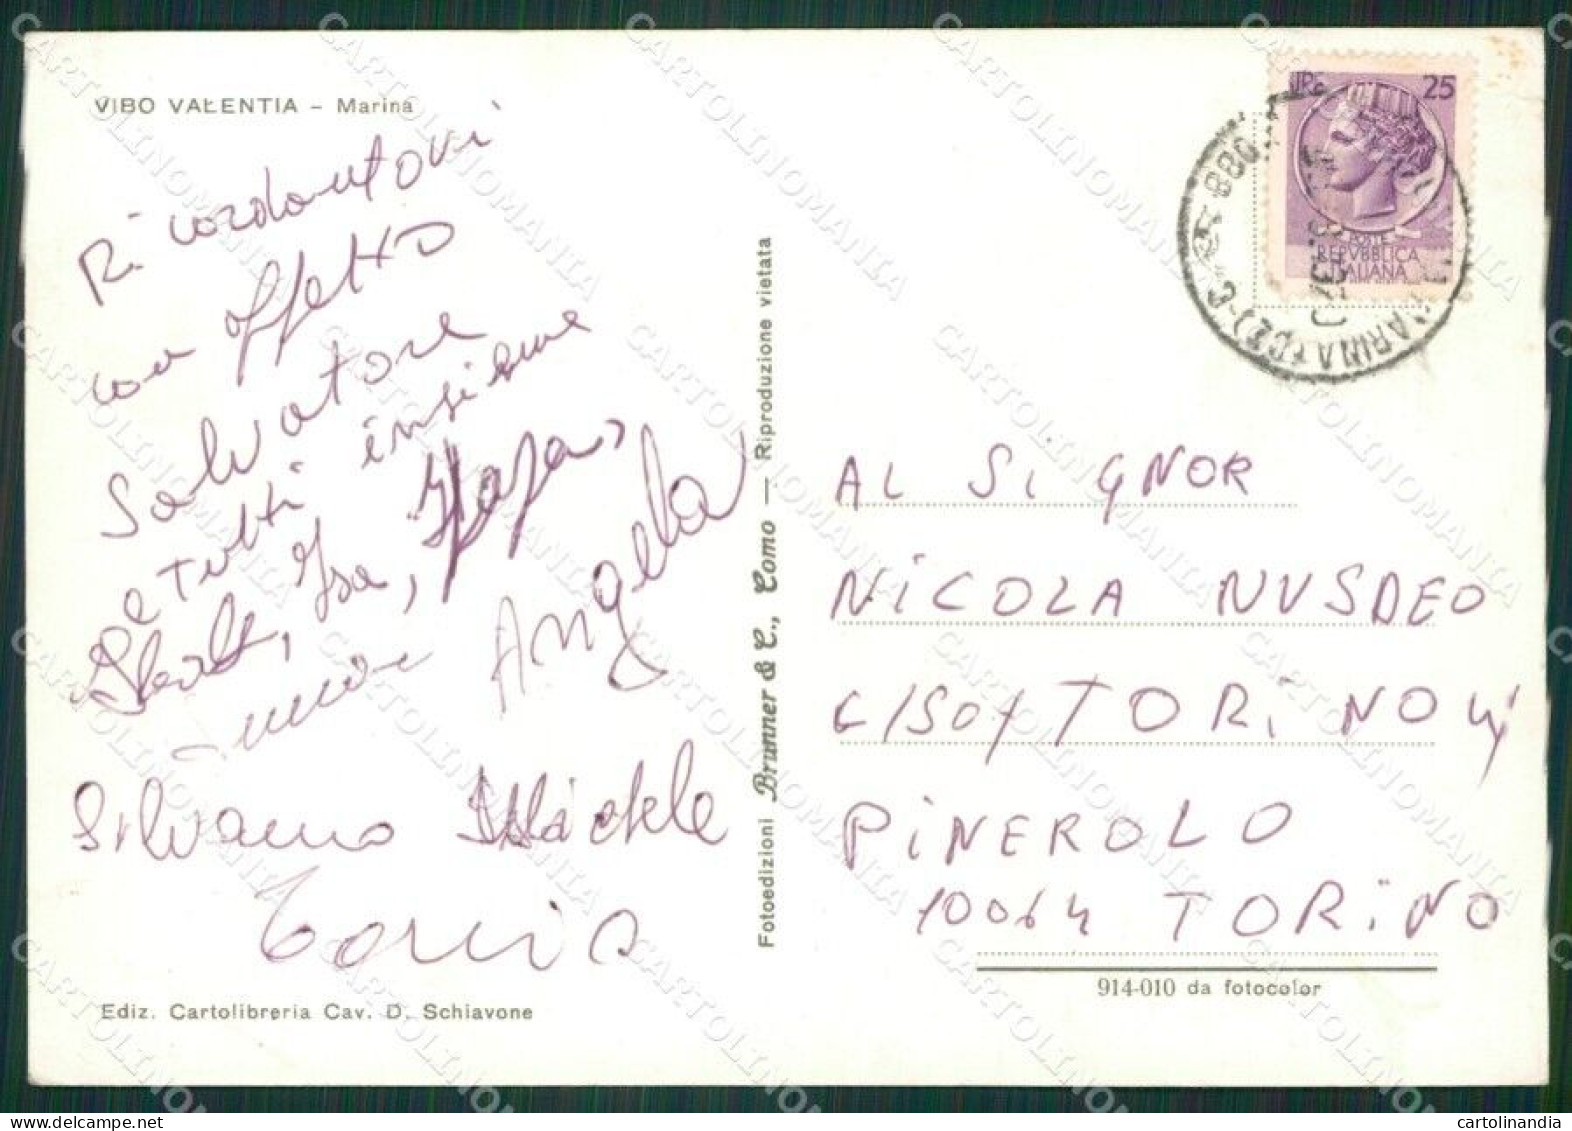 VIBO VALENTIA - Marina
Ricordantovi
con affetto
Salvatore
e tutti insieme
Isa,
Angela
Silvano Michele
Fotoedizioni Brunner & C., Como — Riproduzione vietata
Ediz. Cartolibreria Cav. D. Schiavone
25
POSTE
REPVBBLICA
ITALIANA
AL SIGNOR
NICOLA NUSDEO
C/SO/TORINO 4
PINEROLO
10064 TORINO
914-010 da fotocolor
CARTOLINOMANIA
cartolinandia